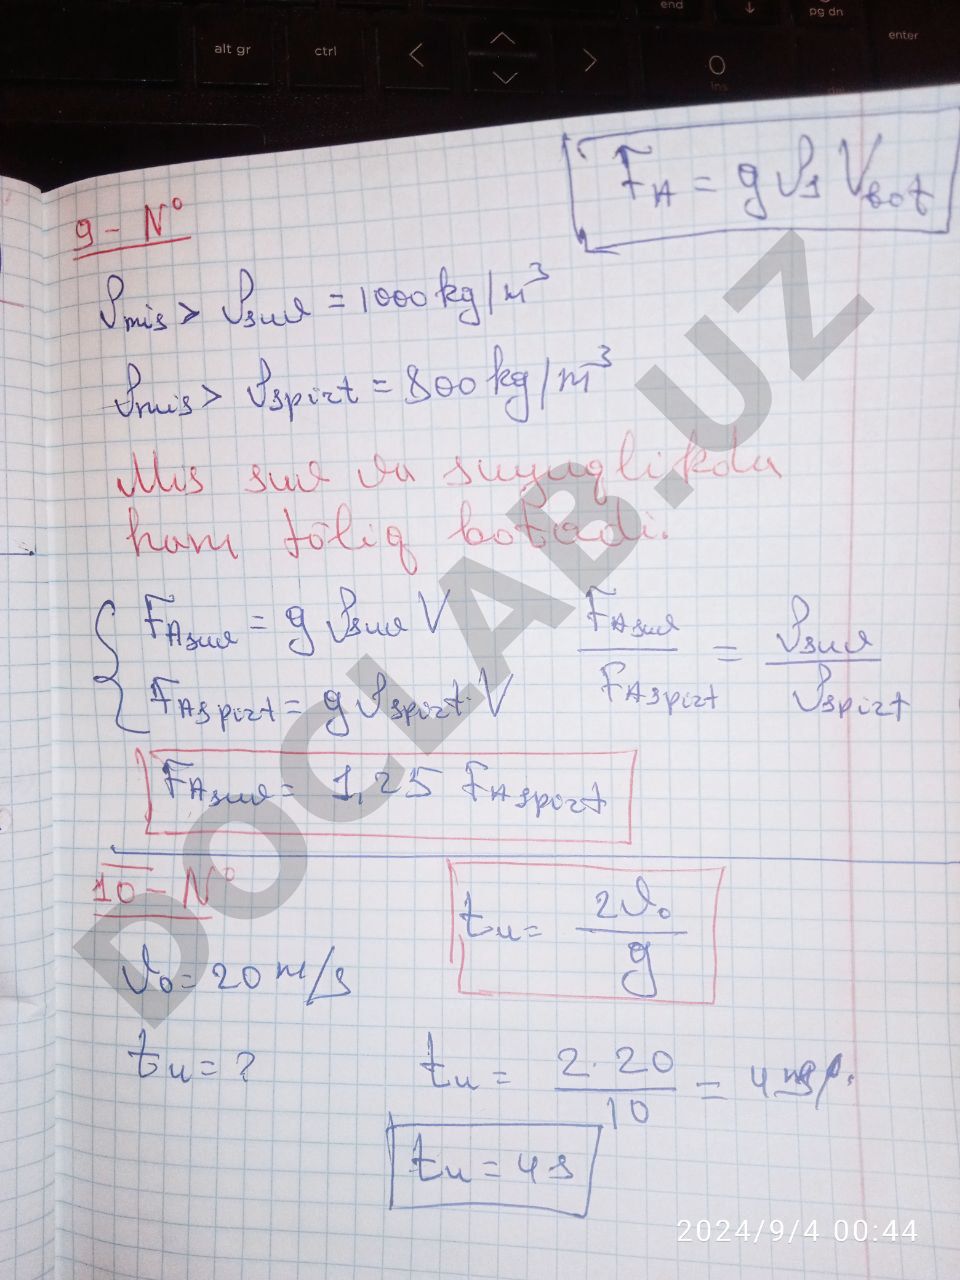 end
pg dn
enter
alt gr
ctrl
ins
F_A = g ρ_1 V_bot
9 - N°
ρ_mis > ρ_suv = 1000 kg/m³
ρ_mis > ρ_spirt = 800 kg/m³
Mis suv va suyuqlikda
ham to'liq botadi.
F_A suv = g ρ_suv V
F_A spirt = g ρ_spirt · V
F_A suv / F_A spirt = ρ_suv / ρ_spirt
F_A suv = 1,25 F_A spirt
10 - N°
t_u = 2ϑ_0 / g
ϑ_0 = 20 m/s
t_u = ?
t_u = 2·20 / 10 = 4
t_u = 4 s
DOCLAB.UZ
2024/9/4 00:44